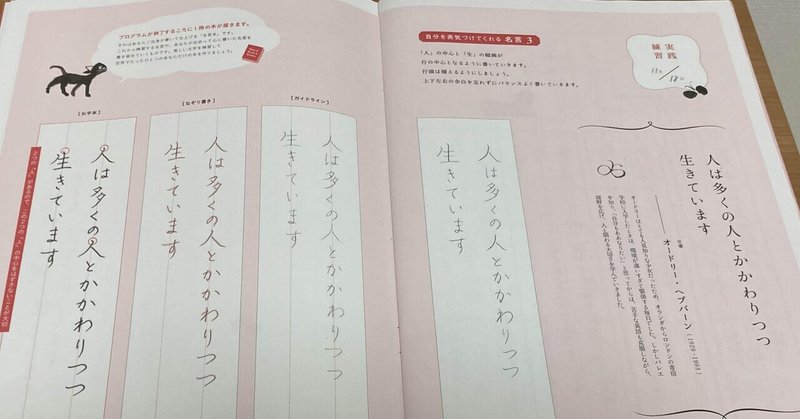 プログラムが終了するころに1冊の本が届きます。
自分を勇気づけてくれる 名言 3
「人」の中心と「生」の縦画が
行の中心となるように書いていきます。
行頭は揃えるようにしましょう。
上下左右の余白を忘れずにバランスよく書いていきます。
実践
練習
11/18
人は多くの人とかかわりつつ
生きています
女優
オードリー・ヘプバーン(1929-1993)
人は多くの人とかかわりつつ
生きています
【ガイドライン】
人は多くの人とかかわりつつ
生きています
【なぞり書き】
人は多くの人とかかわりつつ
生きています
【お手本】
人は多くの人とかかわりつつ
生きています
2つの「人」があるので、この2つの「人」の中心をはずさないことが大切